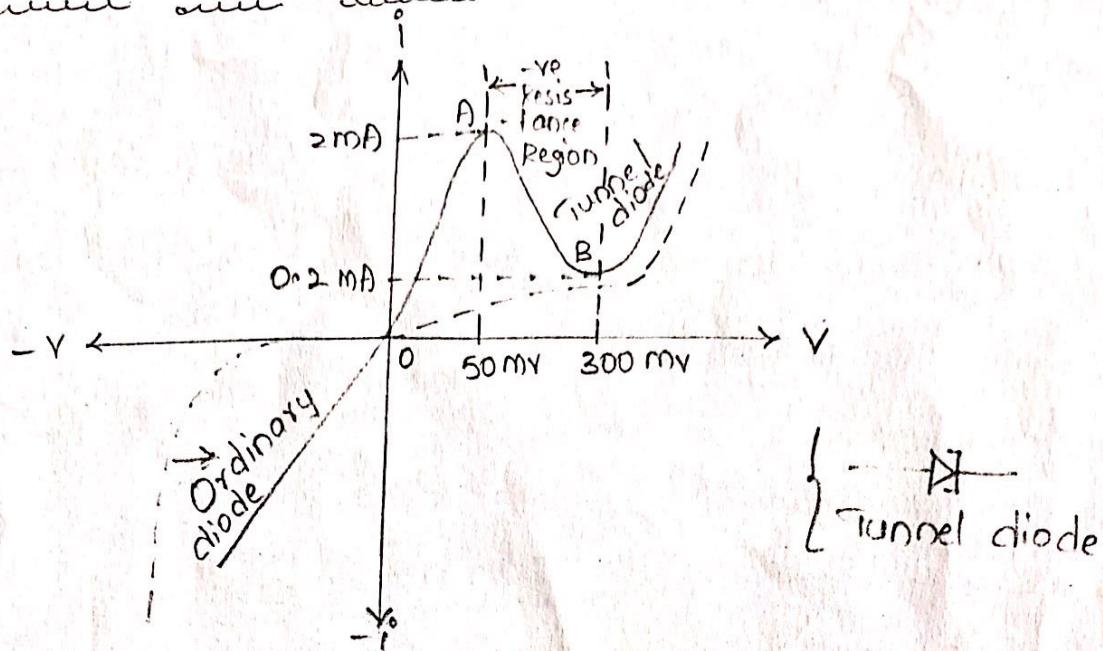 i
-ve
resis
A
tance
2 mA
Region
Tunnel
diode
B
0.2 mA
-V
V
0
50 mv
300 mv
Ordinary
diode
Tunnel diode
-i